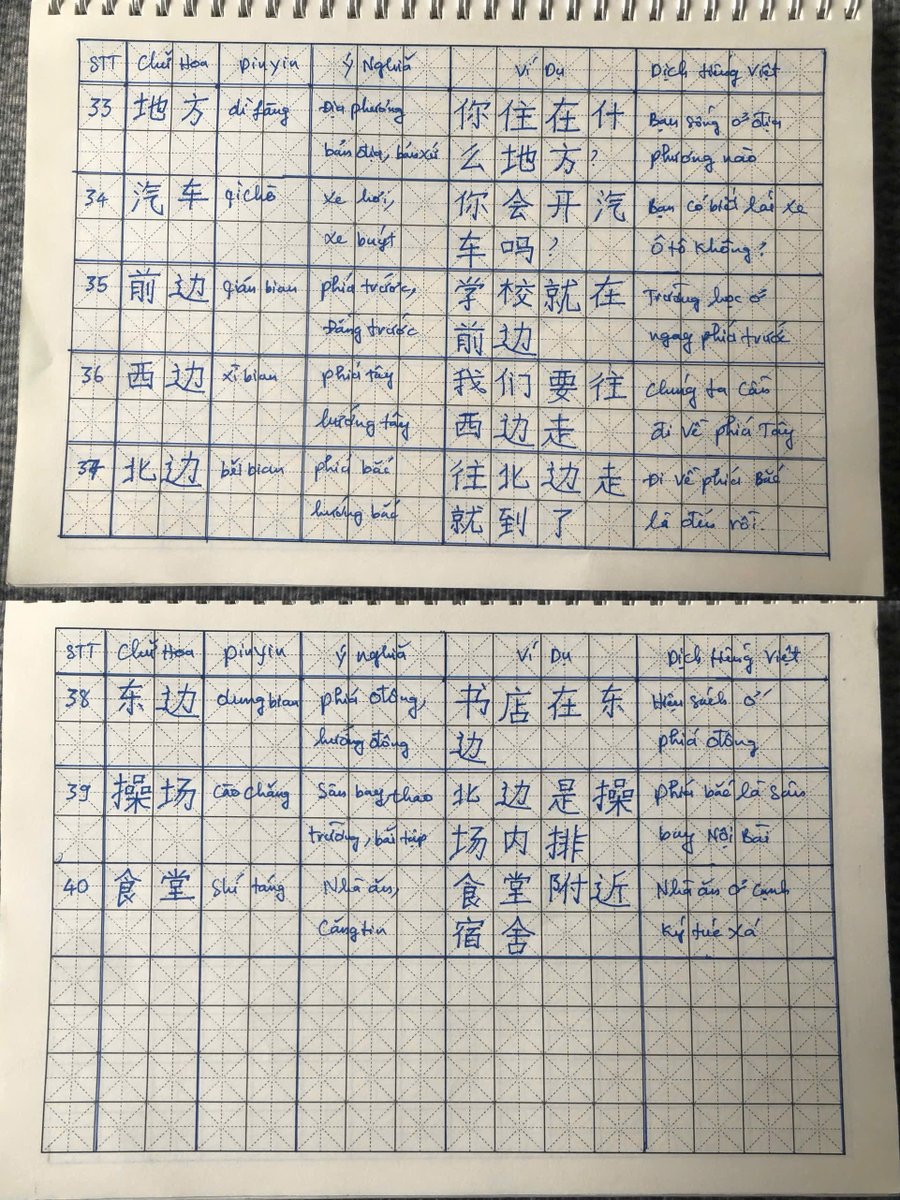 STT Chữ Hoa Pinyin Ý Nghĩa Ví Dụ Dịch Tiếng Việt
33 地方 dì fāng Địa phương 你住在什 Bạn sống ở địa
bản địa, bản xứ 么地方? phương nào
34 汽车 qì chē xe hơi, 你会开汽 Bạn có biết lái xe
xe buýt 车吗? Ô tô không?
35 前边 qián bian phía trước, 学校就在 Trường học ở
Đằng trước 前边 ngay phía trước
36 西边 xī bian phía tây 我们要往 Chúng ta cần
hướng tây 西边走 đi về phía Tây
37 北边 běi bian phía bắc 往北边走 Đi về phía Bắc
hướng bắc 就到了 là đến rồi.
STT Chữ Hoa Pinyin Ý nghĩa Ví Dụ Dịch Tiếng Việt
38 东边 dung bian phía đông, 书店在东 Hiệu sách ở
hướng đông 边 phía đông
39 操场 cāo chǎng Sân bay, thao 北边是操 phía bắc là sân
trường, bãi tập 场内排 bay Nội Bài
40 食堂 shí táng Nhà ăn, 食堂附近 Nhà ăn ở cạnh
Căng tin 宿舍 Ký túc xá